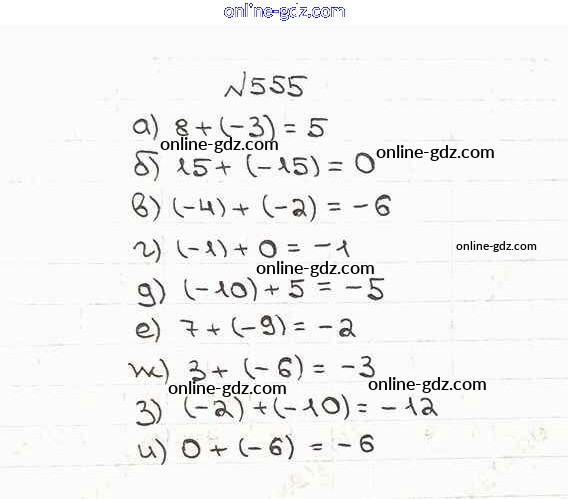 online-gdz.com
№555
а) 8 + (-3) = 5
online-gdz.com
online-gdz.com
б) 15 + (-15) = 0
в) (-4) + (-2) = -6
г) (-1) + 0 = -1
online-gdz.com
online-gdz.com
д) (-10) + 5 = -5
е) 7 + (-9) = -2
ж) 3 + (-6) = -3
online-gdz.com
online-gdz.com
з) (-2) + (-10) = -12
и) 0 + (-6) = -6